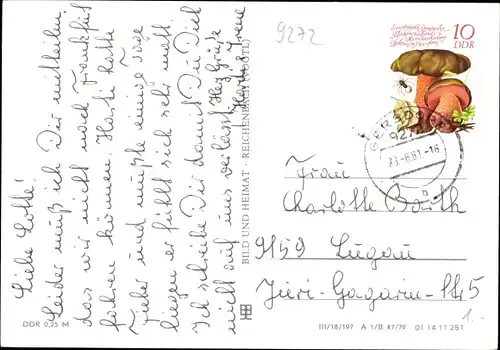 Liebe Lotte!
Leider muß ich Dir mitteilen,
das wir nicht nach Frankfurt
fahren können. Hasti hatte
Fieber und mußte einige Tage
liegen er fühlt sich sehr matt.
Ich schreibe Dir damit Du Dich
nicht auf uns verläßt. Herzl. Grüße
Irene
DDR 0,25 M
BILD UND HEIMAT · REICHENBACH (VOGTL)
9272
10
DDR
GERSD
927
23.-6.81.-16
b
Frau
Charlotte Barth
9159 Lugau
Juri-Gagarin-Str. 5
III/18/197 A 1/B 47/79 01 14 11 251
1.-